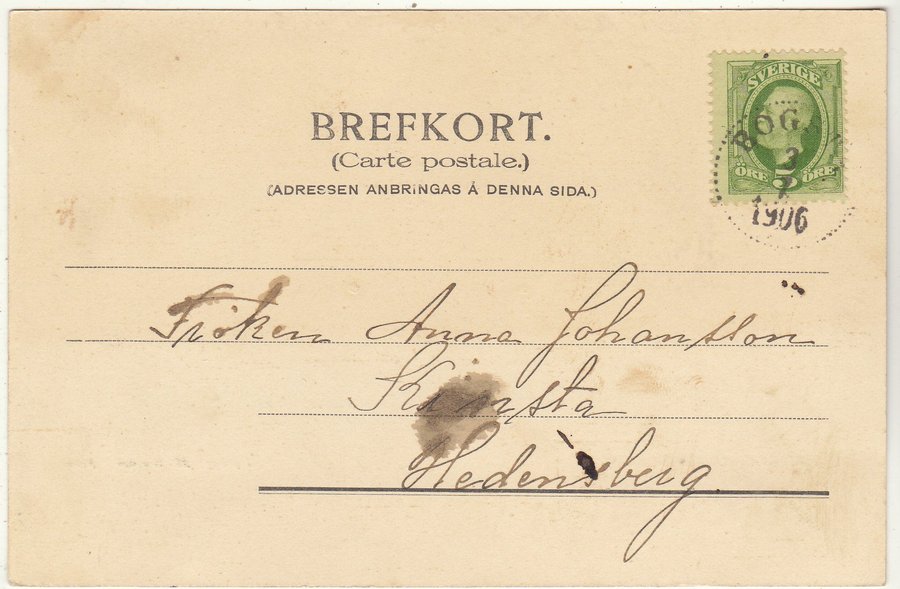 BREFKORT.
(Carte postale.)
(ADRESSEN ANBRINGAS Å DENNA SIDA.)
SVERIGE
5
ÖRE ÖRE
1906
Fröken Anna Johansson
Kinsta
Hedensberg.